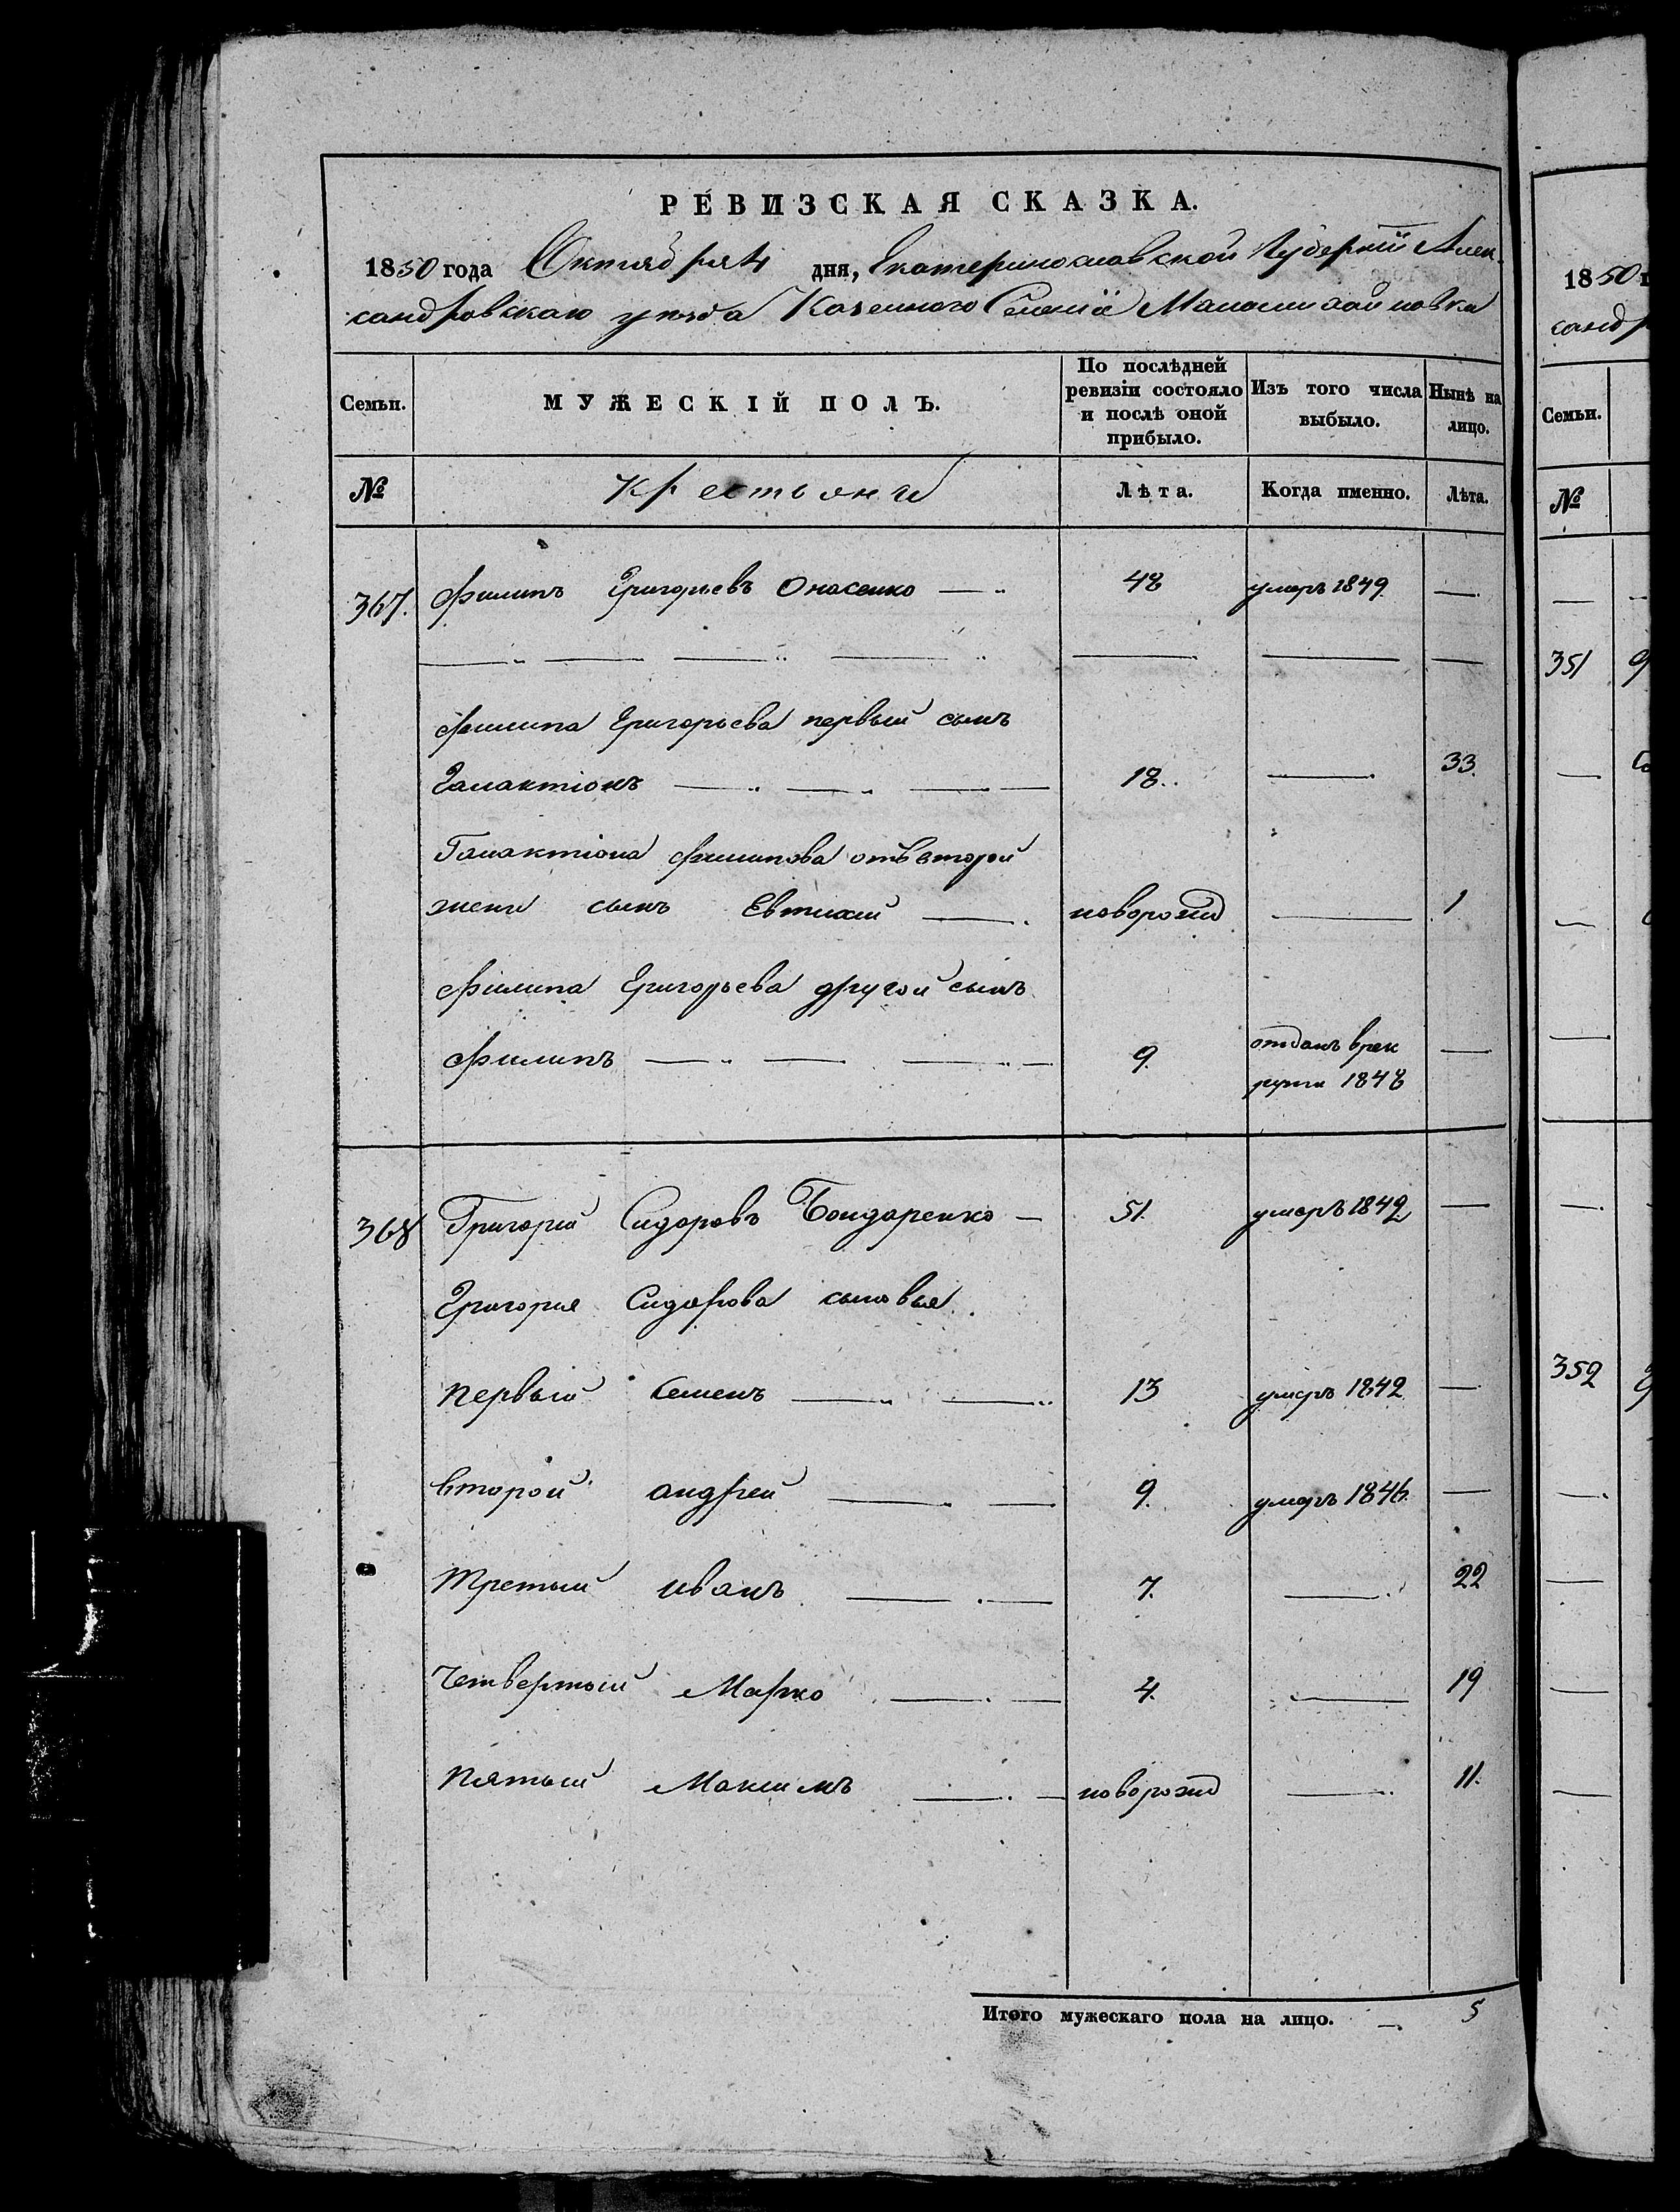 РЕВИЗСКАЯ СКАЗКА.
1850 года Октября 4 дня, Екатеринославской Губерніи Алек-
сандровскаго уѣзда Казеннаго Селенія
Семьи.
МУЖЕСКІЙ ПОЛЪ.
По послѣдней
ревизіи состояло
и послѣ оной
прибыло.
Изъ того числа
выбыло.
Нынѣ на
лицо.
№
Крестьяне
Лѣта.
Когда именно.
Лѣта.
367. Филипъ Григорьевъ Онасенко 48 умеръ 1849 —
Филипа Григорьева первый сынъ
Галактіонъ 18. — 33.
Галактіона Филипова отъ второй
жены сынъ Евтихій новорожд — 1
Филипа Григорьева другой сынъ
Филипъ 9. отданъ врек
руты 1848 —
368 Григорій Сидоровъ Бондаренко — 51. умеръ 1849 —
Григорія Сидорова сыновья
первый Семенъ 13 умеръ 1842 —
второй андрей 9. умеръ 1846. —
Третьій иванъ 7. — 22
Четвертый Марко 4. — 19
Пятый Максимъ новорожд — 11.
Итого мужескаго пола на лицо. — 5
1850 г
санд
Семьи.
№
351
352